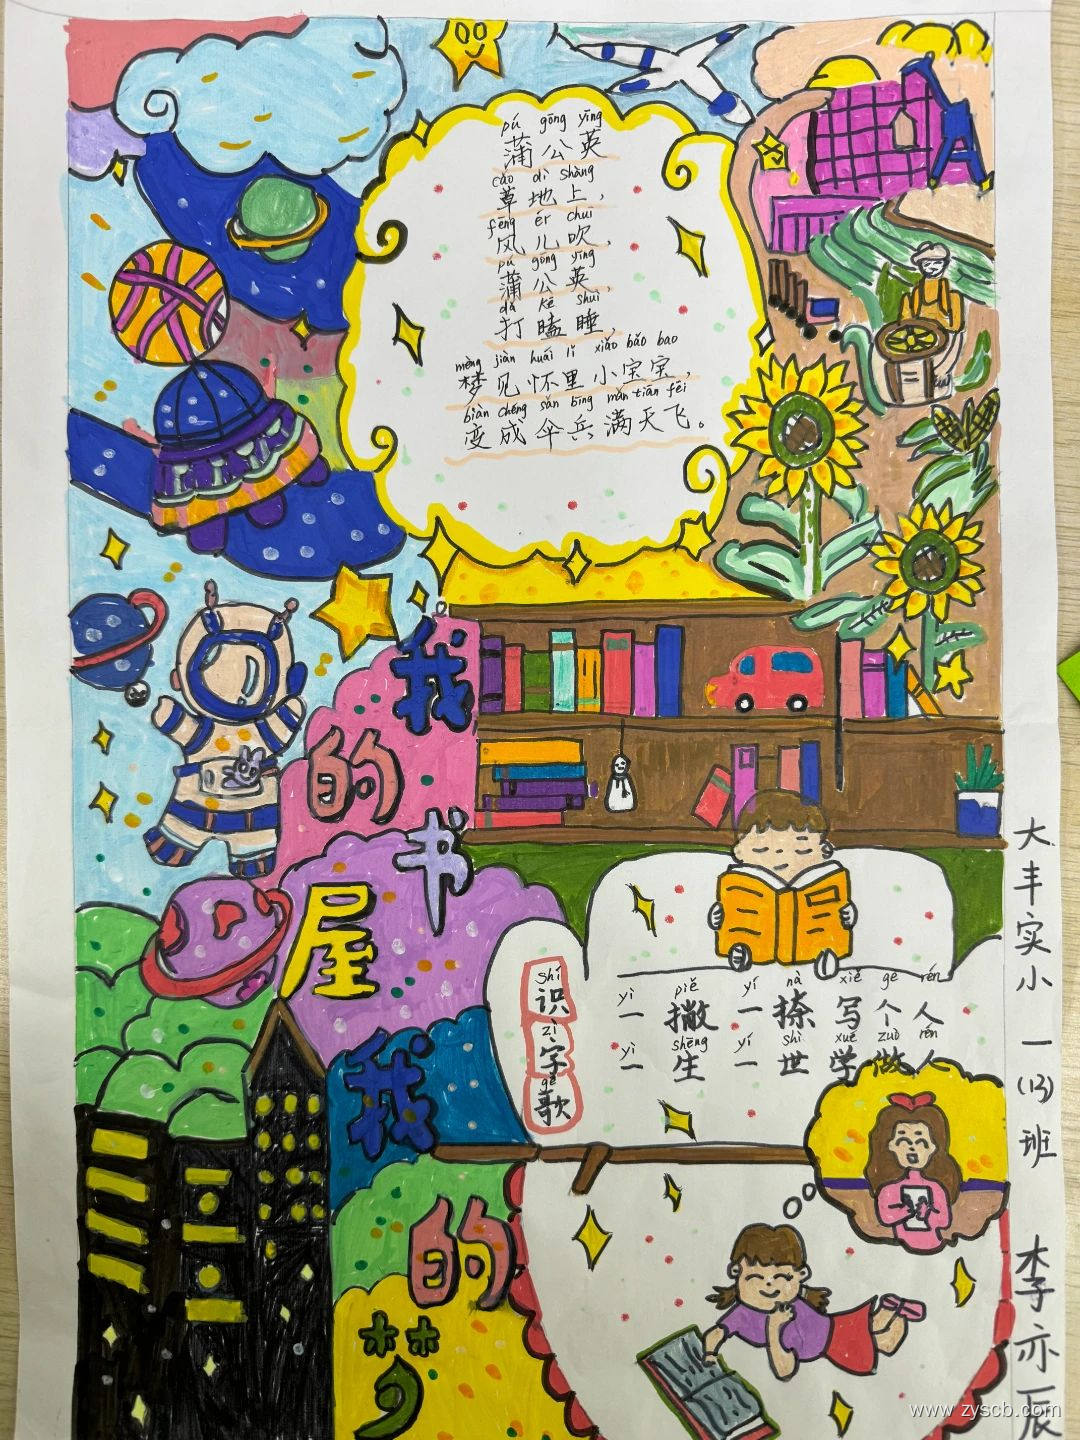 pú gōng yīng
蒲公英
cǎo dì shàng
草地上，
fēng ér chuī
风儿吹，
pú gōng yīng
蒲公英，
dǎ kē shuì
打瞌睡，
mèng jiàn huái lǐ xiǎo bǎo bao
梦见怀里小宝宝，
biàn chéng sǎn bīng mǎn tiān fēi
变成伞兵满天飞。
我的书屋我的梦
shí zì gē
识字歌
yì piě yí nà xiě gè rén
一撇一捺写个人
yì shēng yí shì xué zuò rén
一生一世学做人
大丰实小一(13)班 李亦辰
www.zyscb.com